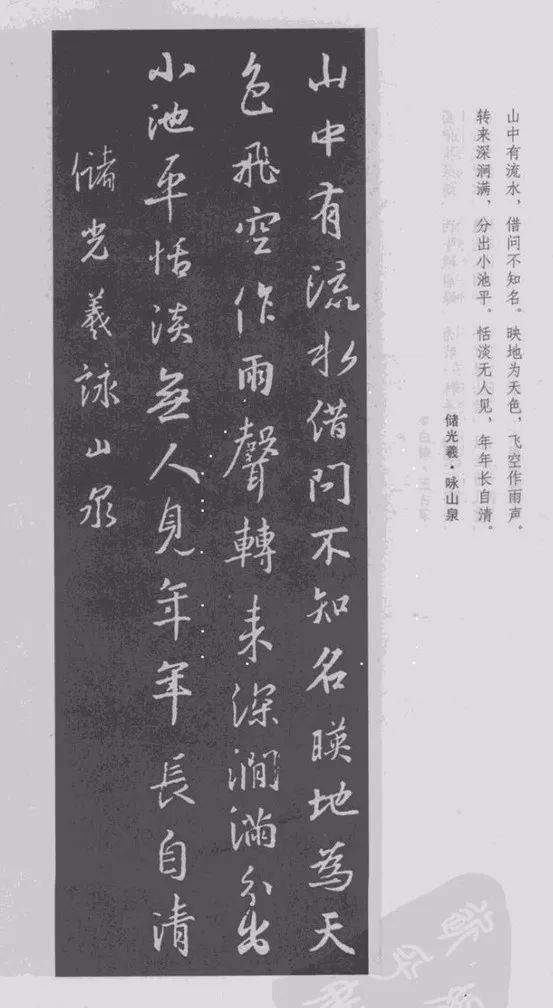 山中有流水，借问不知名。映地为天色，飞空作雨声。
转来深涧满，分出小池平。恬淡无人见，年年长自清。
储光羲·咏山泉
山中有流水借問不知名暎地為天
色飛空作雨聲轉来深澗滿分出
小池平恬淡無人見年年長自清
儲光羲詠山泉